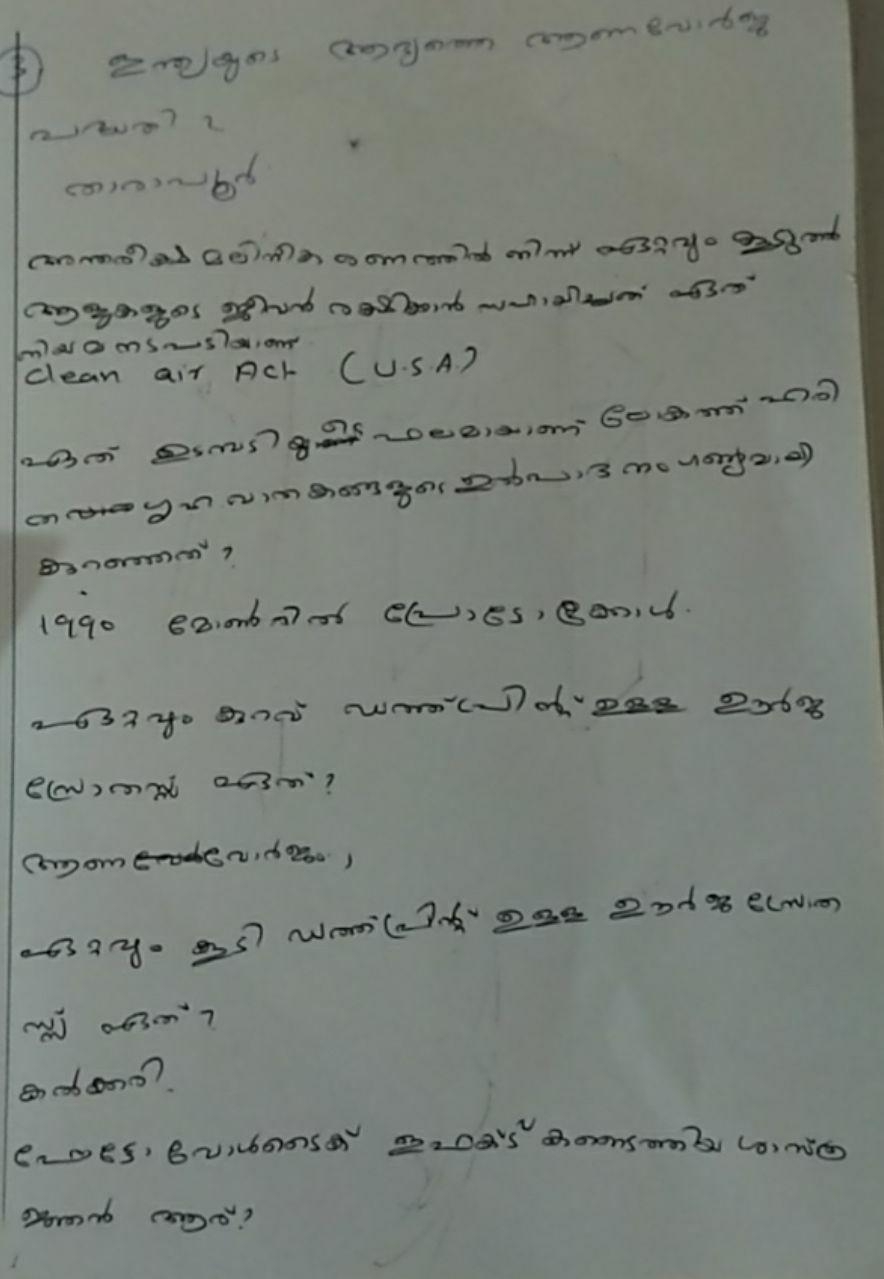 3 ഇന്ത്യയുടെ ആദ്യത്തെ ആണവോർജ്ജ
പദ്ധതി ?
താരാപ്പൂർ
അന്തരീക്ഷ മലിനീകരണത്തിൽ നിന്ന് ഏറ്റവും കൂടുതൽ
ആളുകളുടെ ജീവൻ രക്ഷിക്കാൻ സഹായിച്ചത് ഏത്
നിയമ നടപടിയാണ്
Clean air Act (U.S.A.)
ഏത് ഉടമ്പടിയുടെ ഫലമായാണ് ലോകത്ത് ഹരി
ത ഗൃഹ വാതകങ്ങളുടെ ഉൽപാദനം ഗണ്യമായി
കുറഞ്ഞത് ?
1990 മോൺറിൽ പ്രോട്ടോക്കോൾ.
ഏറ്റവും കുറവ് ഡത്ത്പ്രിന്റ് ഉള്ള ഊർജ്ജ
സ്രോതസ്സ് ഏത് ?
ആണവോർജം,
ഏറ്റവും കൂടി ഡത്ത്പ്രിന്റ് ഉള്ള ഊർജ്ജ സ്രോത
സ്സ് ഏത് ?
കൽക്കരി.
ഫോട്ടോ വോൾടൈക് ഇഫക്ട് കണ്ടെത്തിയ ശാസ്ത്ര
ജ്ഞൻ ആര് ?